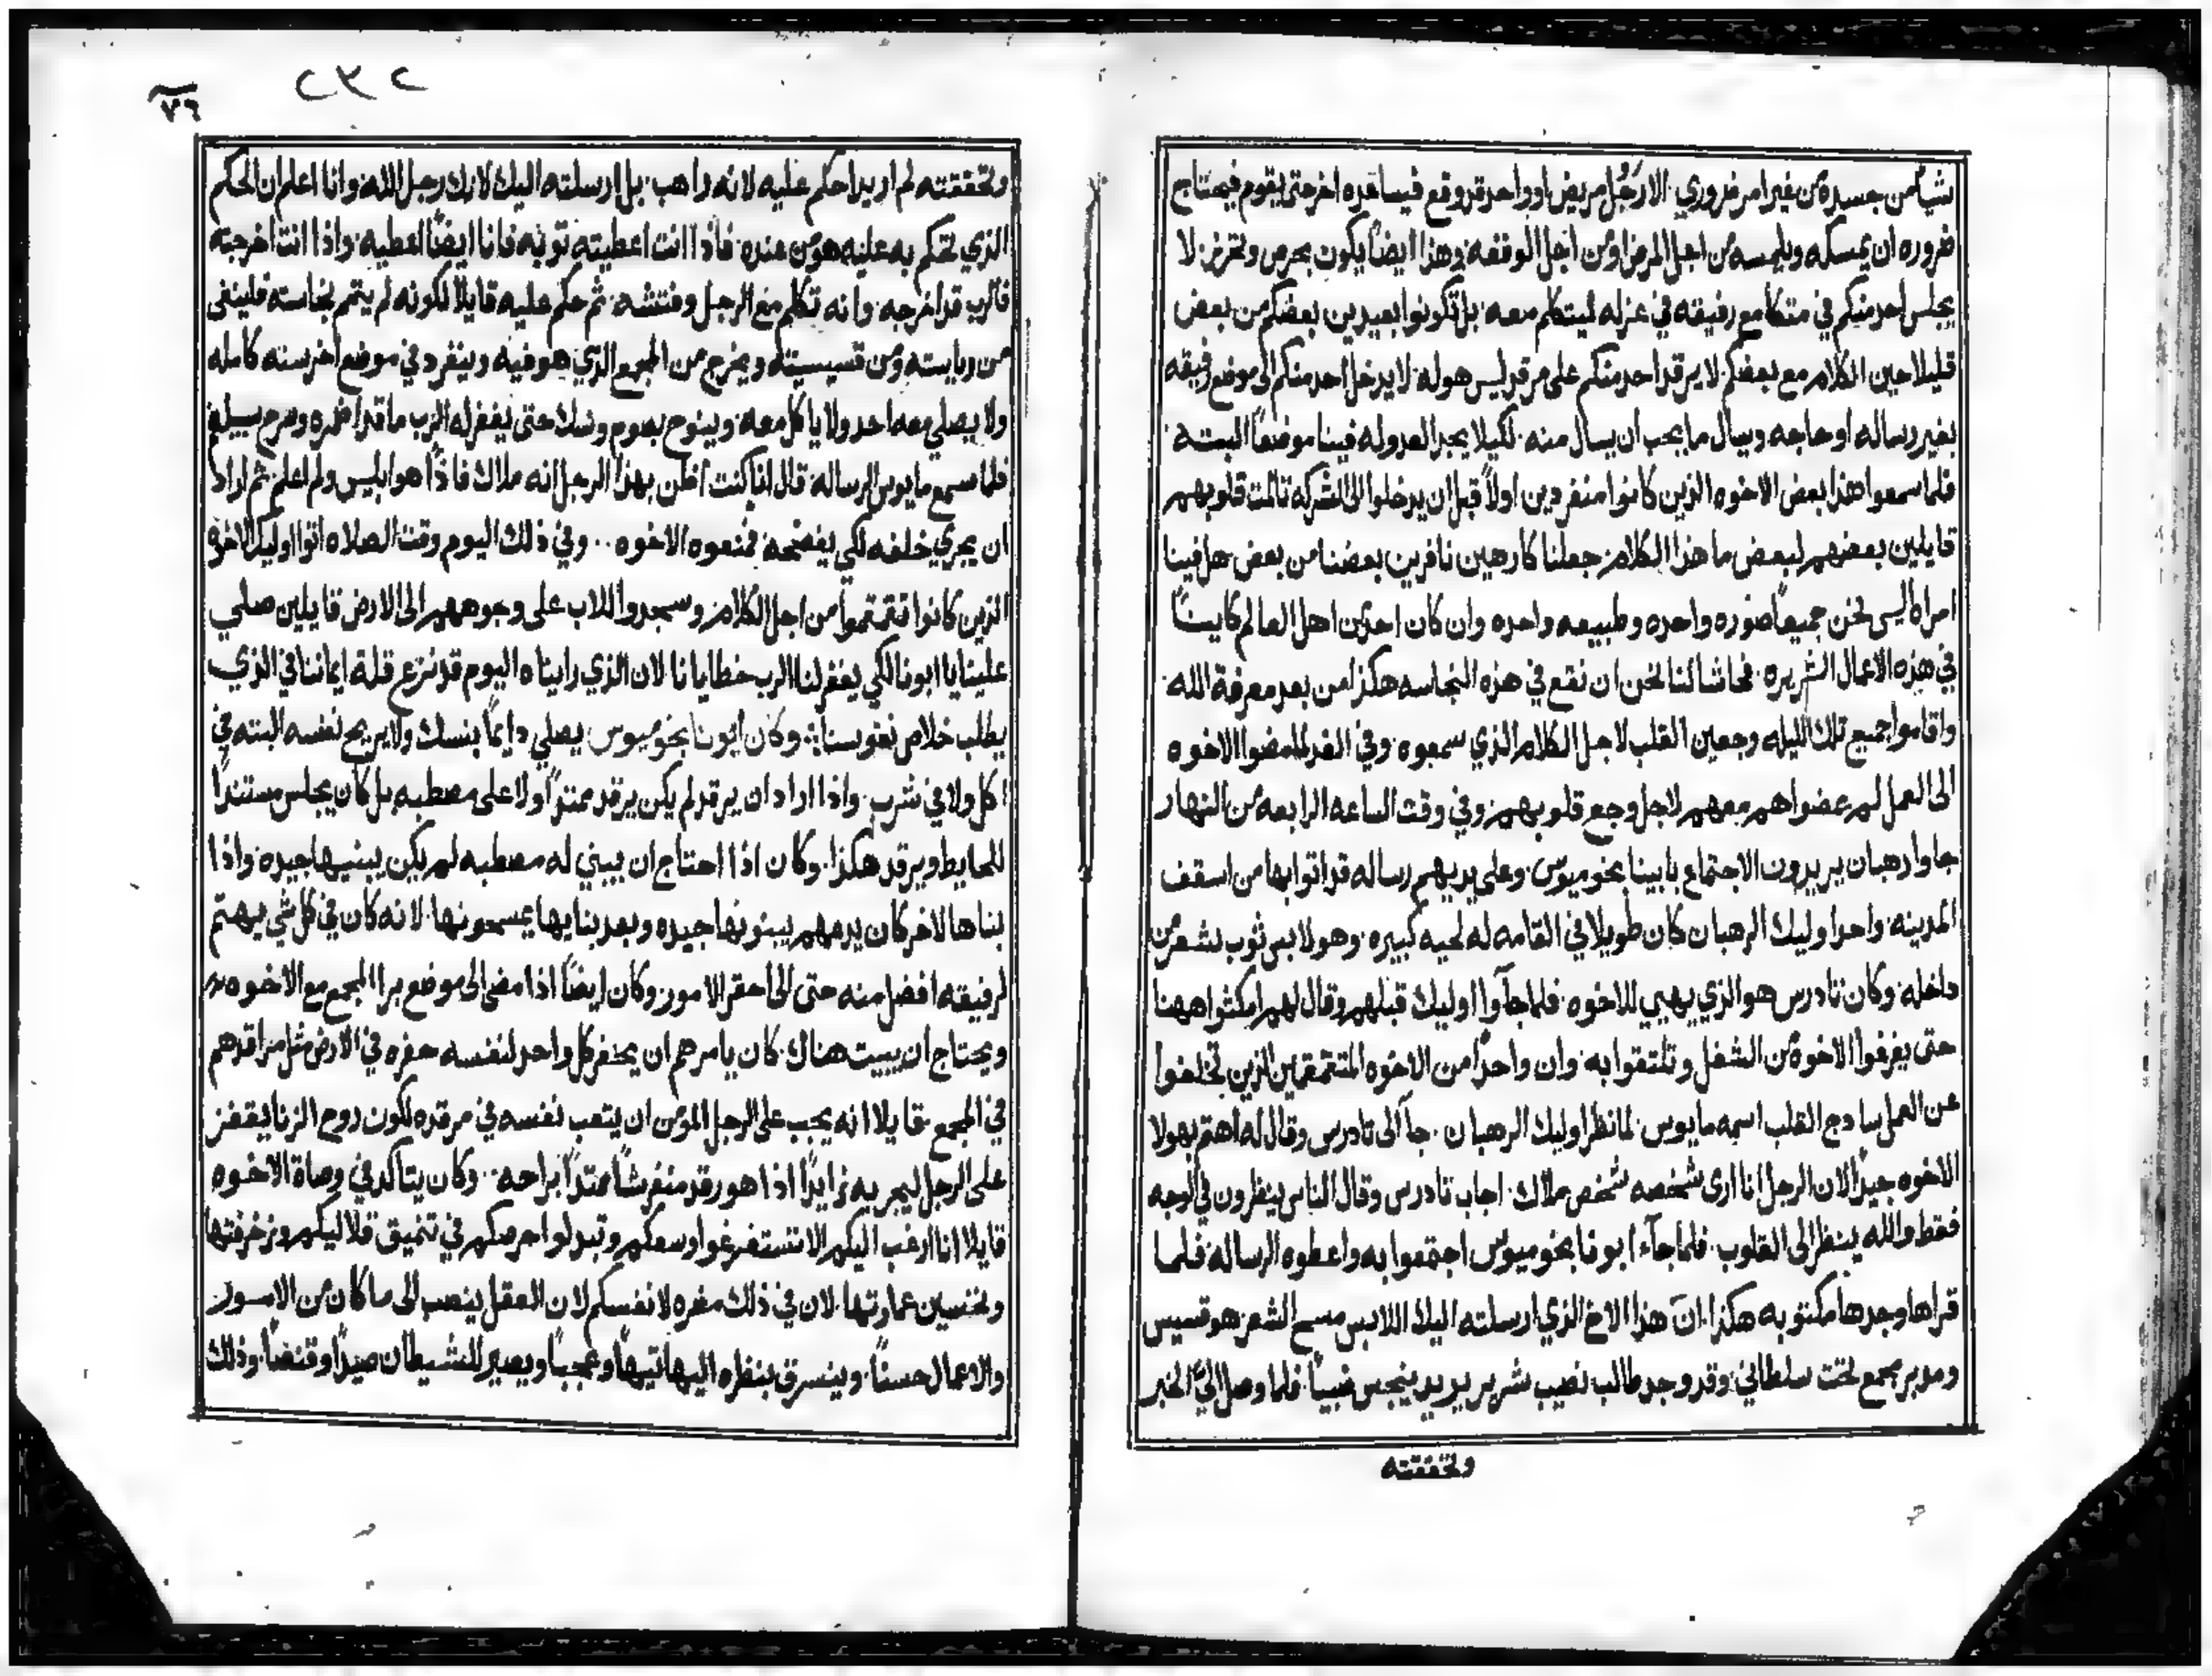 شيا من جسده من غير امر ضروري. الا رجل مريض او واحد قد وقع فيساعده اخر حتي يقوم فيحتاج
ضروره ان يمسكه ويلمسه من اجل المرض او من اجل الوقعه وهذا ايضاً يكون بحرص وتحرز. لا
يجلس احد منكم في متكا مع رفيقه في عزله ليتكلم معه. بل تكونوا بعيدين بعضكم من بعض
قليلا حين الكلام مع بعضكم. لا يرقد احد منكم على مرقد ليس هو له. لا يدخل احد منكم الى موضع رفيقه
بغير رساله او حاجه ويسال ما يجب ان يسال منه. لكيلا يجد العدو له فينا موضعاً البته.
فلما سمعوا هذا بعض الاخوه الذين كانوا منفردين اولاً قبل ان يدخلوا الى الشركه تالمت قلوبهم
قايلين بعضهم لبعض ما هذا الكلام جعلنا كارهين نافرين بعضنا من بعض هل فينا
امراه اليس نحن جميعاً صوره واحده وطبيعه واحده وان كان احد من اهل العالم كاينـاً
في هذه الاعمال الشريره. فحاشا لنا نحن ان نقع في هذه النجاسه هكذا من بعد معرفة الله.
واقاموا جميع تلك الليله وجعين القلب لاجل الكلام الذي سمعوه. وفي الغد لما مضوا الاخوه
الى العمل لم يمضوا هم معهم لاجل وجع قلوبهم. وفي وقت الساعه الرابعه من النهار
جاوا رهبان يريدون الاجتماع بابينا بخوميوس. وعلى يديهم رساله قد اتوا بها من اسقف
المدينه. واحد اوليك الرهبان كان طويلا في القامه له لحيه كبيره. وهو لابس ثوب بشعر من
داخله. وكان تادرس هو الذي يهيي للاخوه. فلما جاوا اوليك قبلهم وقال لهم امكثوا ههنا
حتى يفرغوا الاخوه من الشغل وتلتقوا به. وان واحداً من الاخوه المتقمقمين الذين تخلفوا
عن العمل ساذج القلب اسمه مايوس. لما نظر اوليك الرهبان. جآ الى تادرس وقال له اهتم بهولا
الاخوه جيداً لان الرجل انا ارى شخصه شخص ملاك. اجاب تادرس وقال الناس ينظرون في الوجه
فقط والله ينظر الى القلوب. فلما جآء ابونا بخوميوس اجتمعوا به واعطوه الرساله. فلما
قراها وجدها مكتوبه هكذا. ان هذا الاخ الذي ارسلته اليك اللابس مسح الشعر هو قسيس
ومدبر بمجمع تحت سلطاني. وقد وجد طالب نصيب شرير يريد ينجس صبياً. فلما وصل اليّ الخبر
وتحققته
٧٦
٢٣٢
وتحققته لم اريد احكم عليه لانه راهب. بل ارسلته اليك لانك رجل لله. وانا اعلم ان الحكم
الذي تحكم به عليه هو من عنده. فاذا انت اعطيته توبه فانا ايضاً اعطيه. واذا انت اخرجته
فالرب قد اخرجه. وانه تكلم مع الرجل وفتشه. ثم حكم عليه قايلا لكونه لم يتمم نجاسته فلينفى
من رياسته ومن قسيسيته ويخرج من المجمع الذي هو فيه وينفرد في موضع اخر سنه كامله
ولا يصلي معه احد ولا ياكل معه. وينوح بصوم ونسك حتى يغفر له الرب ما قد اضمره وصرح سبيله
فلما سمع مايوس الرساله. قال انا كنت اظن بهذا الرجل انه ملاك فاذاً هو ابليس ولم اعلم. ثم اراد
ان يجري خلفه لكي يفضحه فمنعوه الاخوه.. وفي ذلك اليوم وقت الصلاه اتوا اوليك الاخوه
الذين كانوا تقمقموا من اجل الكلام وسجدوا للاب على وجوههم الى الارض قايلين صلي
علينا يا ابونا لكي يغفر لنا الرب خطايانا لان الذي رايناه اليوم قد نزع قلة ايماننا في الذي
يطلب خلاص نفوسنا: وكان ابونا بخوميوس يصلي دايماً بنسك ولا يريح نفسه البته في
اكل ولا في شرب. واذا اراد ان يرقد لم يكن يرقد ممتداً ولا على مصطبه بل كان يجلس مستنداً
للحايط ويرقد هكذا. وكان اذا احتاج ان يبني له مصطبه لم يكن يبنيها جيده. واذا
بناها الاخر كان يدعهم يبنونها جيده وبعد بنايها يمسحونها. لانه كان في كل شي يهتم
لرفيقه افضل منه حتى الى احقر الامور. وكان ايضاً اذا مضى الى موضع برا المجمع مع الاخوه
ويحتاج ان يبيت هناك. كان يامرهم ان يحفر كل واحد لنفسه حفره في الارض مثل مراقدهم
في المجمع. قايلا انه يجب على الرجل المومن ان يتعب نفسه في مرقده لكون روح الزنا يقفز
على الرجل ليجربه زايداً اذا هو رقد منفرشاً ممتداً براحه.. وكان يتاكد في وصاة الاخوه
قايلا انا ارغب اليكم الا تستفرغوا وسعكم وتبدلوا حرصكم في تنميق قلاليكم وزخرفتها
وتحسين عمارتها. لان في ذلك مضره لانفسكم لان العقل ينصب الى ما كان من الامور
والاعمال حسناً. وينسرق بنظره اليها تيهاً وعجباً ويصير للشيطان صيداً وقنصاً. وذلك